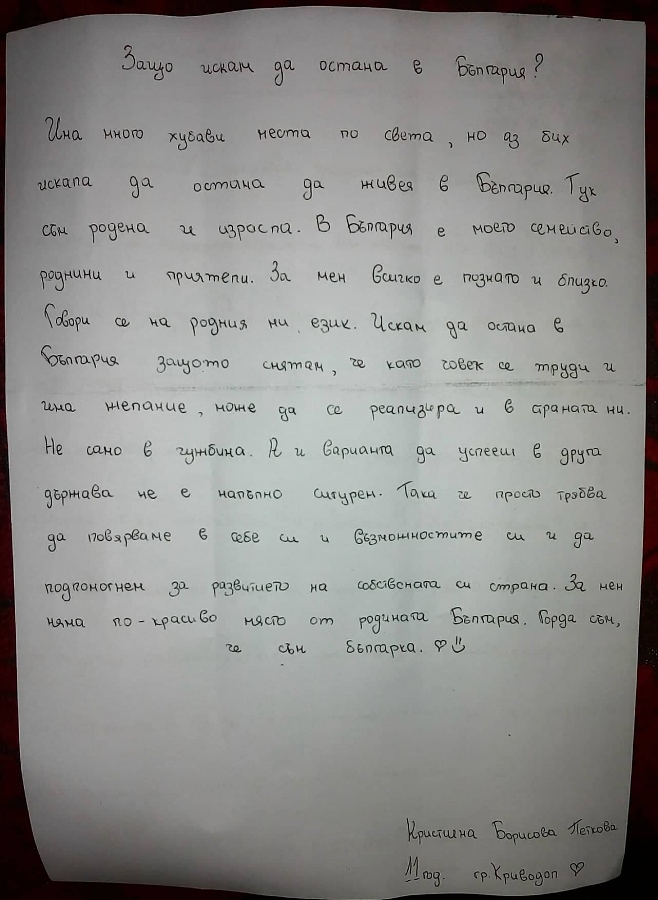 Защо искам да остана в България?
Има много хубави места по света, но аз бих
искала да остана да живея в България. Тук
съм родена и израсла. В България е моето семейство,
роднини и приятели. За мен всичко е познато и близко.
Говори се на родния ни език. Искам да остана в
България защото смятам, че като човек се труди и
има желание, може да се реализира и в страната ни.
Не само в чужбина. А и варианта да успееш в друга
държава не е напълно сигурен. Така че просто трябва
да повярваме в себе си и възможностите си и да
подпомогнем за развитието на собствената си страна. За мен
няма по-красиво място от родината България. Горда съм,
че съм българка. ♡☺
Кристина Борисова Петкова
11 год. гр. Криводол ♡